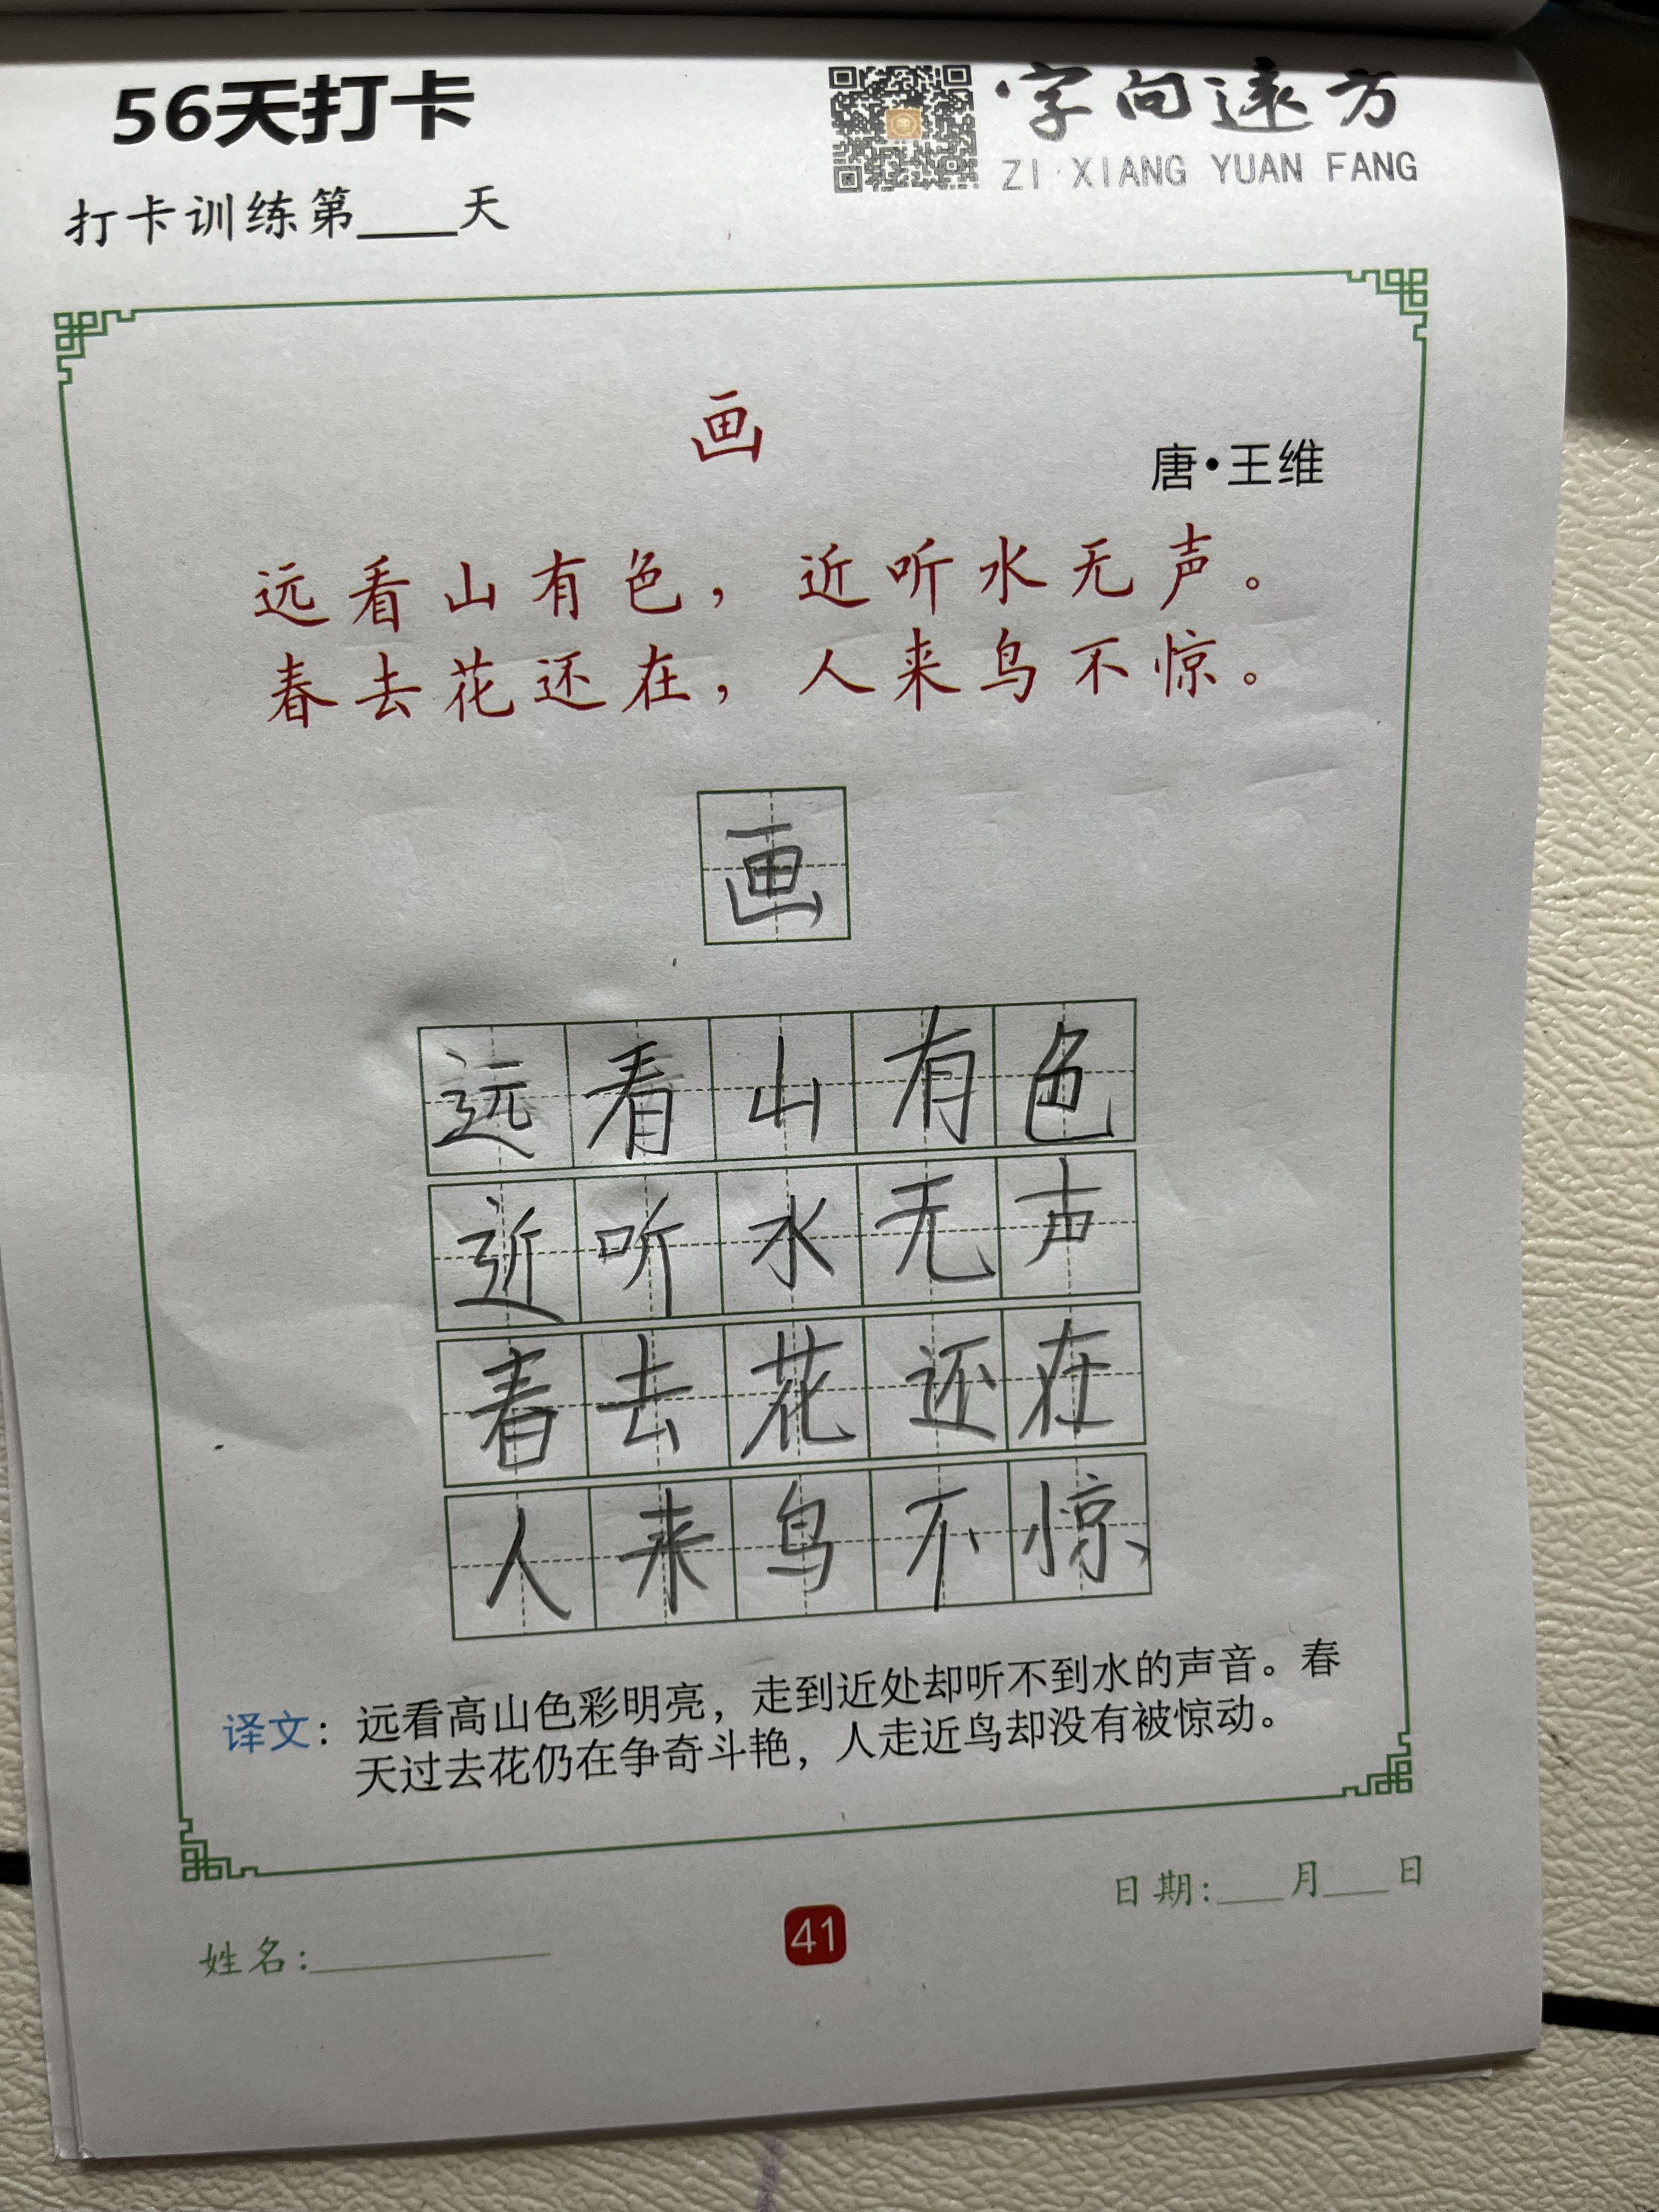 56天打卡
字向远方
ZI XIANG YUAN FANG
打卡训练第____天
画
唐•王维
远看山有色，近听水无声。
春去花还在，人来鸟不惊。
画
远看山有色
近听水无声
春去花还在
人来鸟不惊
译文：远看高山色彩明亮，走到近处却听不到水的声音。春
天过去花仍在争奇斗艳，人走近鸟却没有被惊动。
日期:___月___日
姓名:__________
41